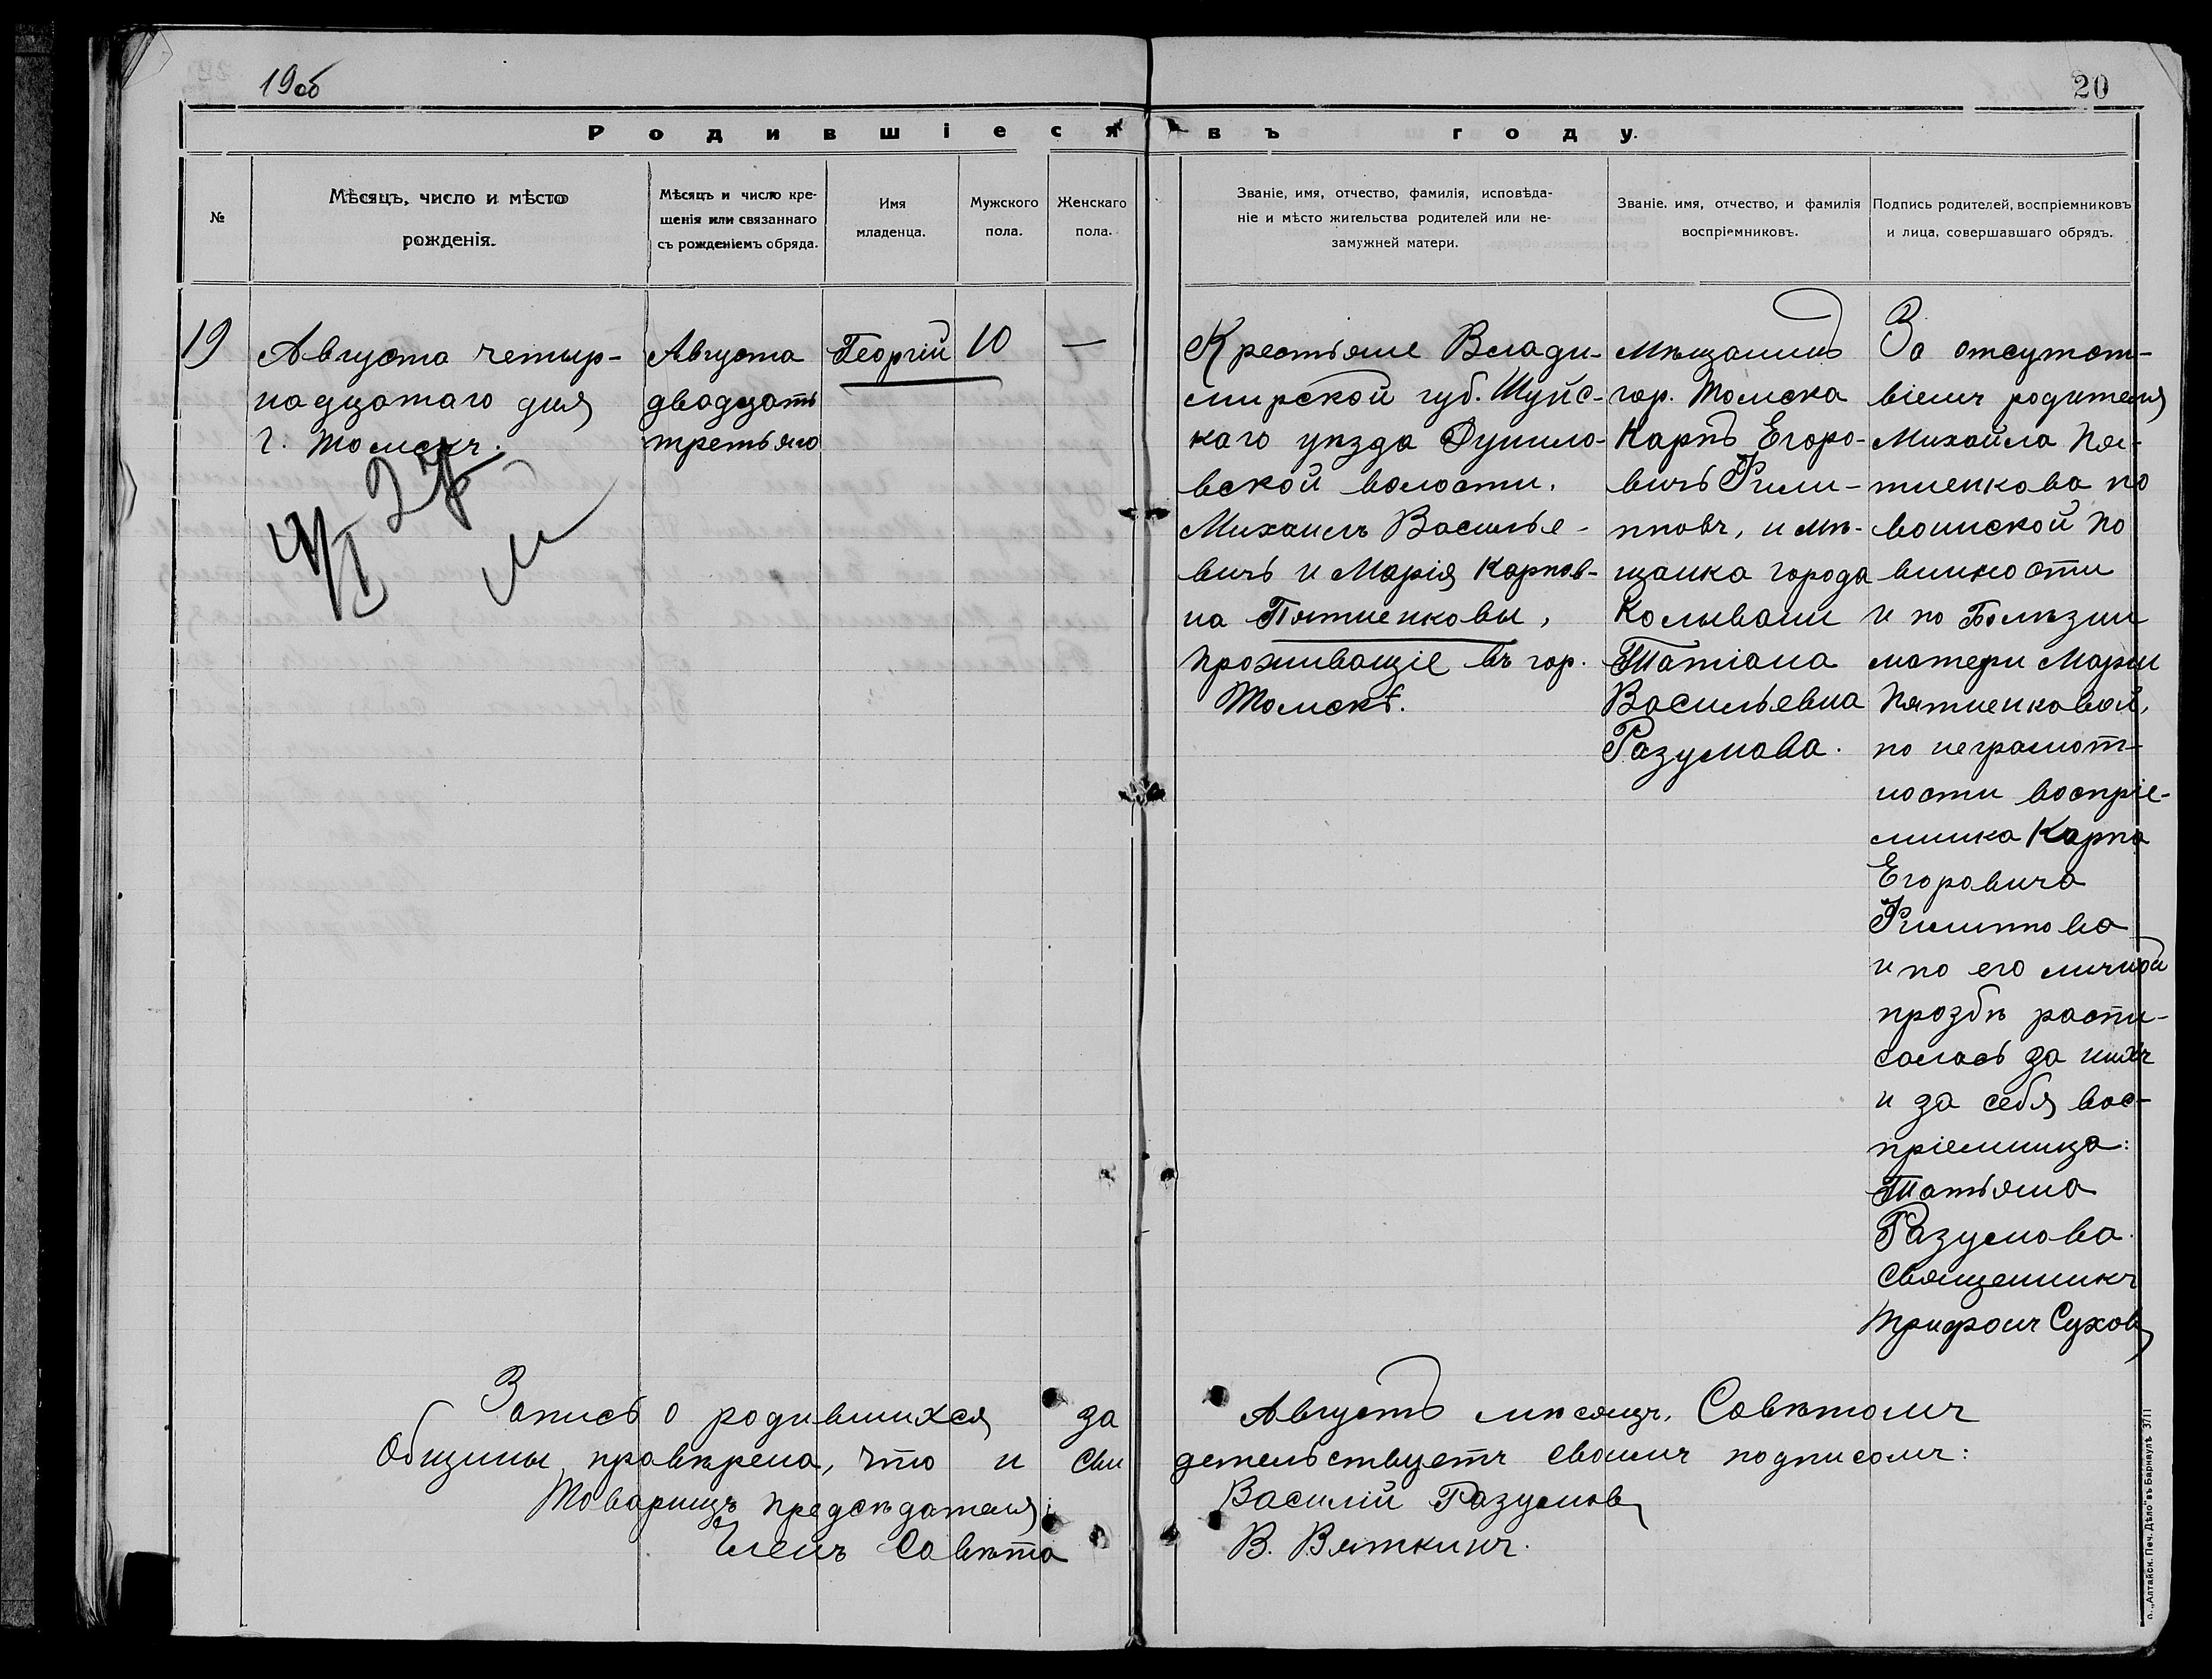 19об
20
Родившіеся въ году.
№
Мѣсяцъ, число и мѣсто
рожденія.
Мѣсяцъ и число кре-
щенія или связаннаго
съ рожденіемъ обряда.
Имя
младенца.
Мужского
пола.
Женскаго
пола.
Званіе, имя, отчество, фамилія, исповѣда-
ніе и мѣсто жительства родителей или не-
замужней матери.
Званіе, имя, отчество, и фамилія
воспріемниковъ.
Подпись родителей, воспріемниковъ
и лица, совершавшаго обрядъ.
19
Августа четыр-
надцатаго дня
г. Томскъ.
Августа
двадцать
третьяго
Георгій
10
—
Крестьяне Влади-
мирской губ. Шуйс-
каго уѣзда Дунило-
вской волости.
Михаилъ Василье-
вичъ и Марія Карпов-
на Пятненковы,
проживащіе въ гор.
Томскѣ.
Мѣщанинъ
гор. Томска
Карпъ Егоро-
вичъ Фили-
пповъ, и мѣ-
щанка города
Колывани
Татіана
Васильевна
Разумова.
За отсутст-
віемъ родителя
Михаила Пя-
тненкова по
воинской по
винности
и по болѣзни
матери Марии
Пятненковой,
по неграмот-
ности воспріе-
мника Карпа
Егоровича
Филиппова
и по его личной
прозбѣ распи-
салась за нихъ
и за себя вос-
пріемница:
Татьяна
Разумова.
Священникъ
Трифонъ Сухов
Запись о родившихся за Августъ мѣсяцъ, Совѣтомъ
Общины провѣрена, что и сви детельствуетъ своимъ подписомъ:
Товарищъ предсѣдателя: Василій Разумов
Членъ Совѣта В. Вяткинъ.
о. „Алтайск. Печ. Дѣло" въ Барнаулѣ 3711